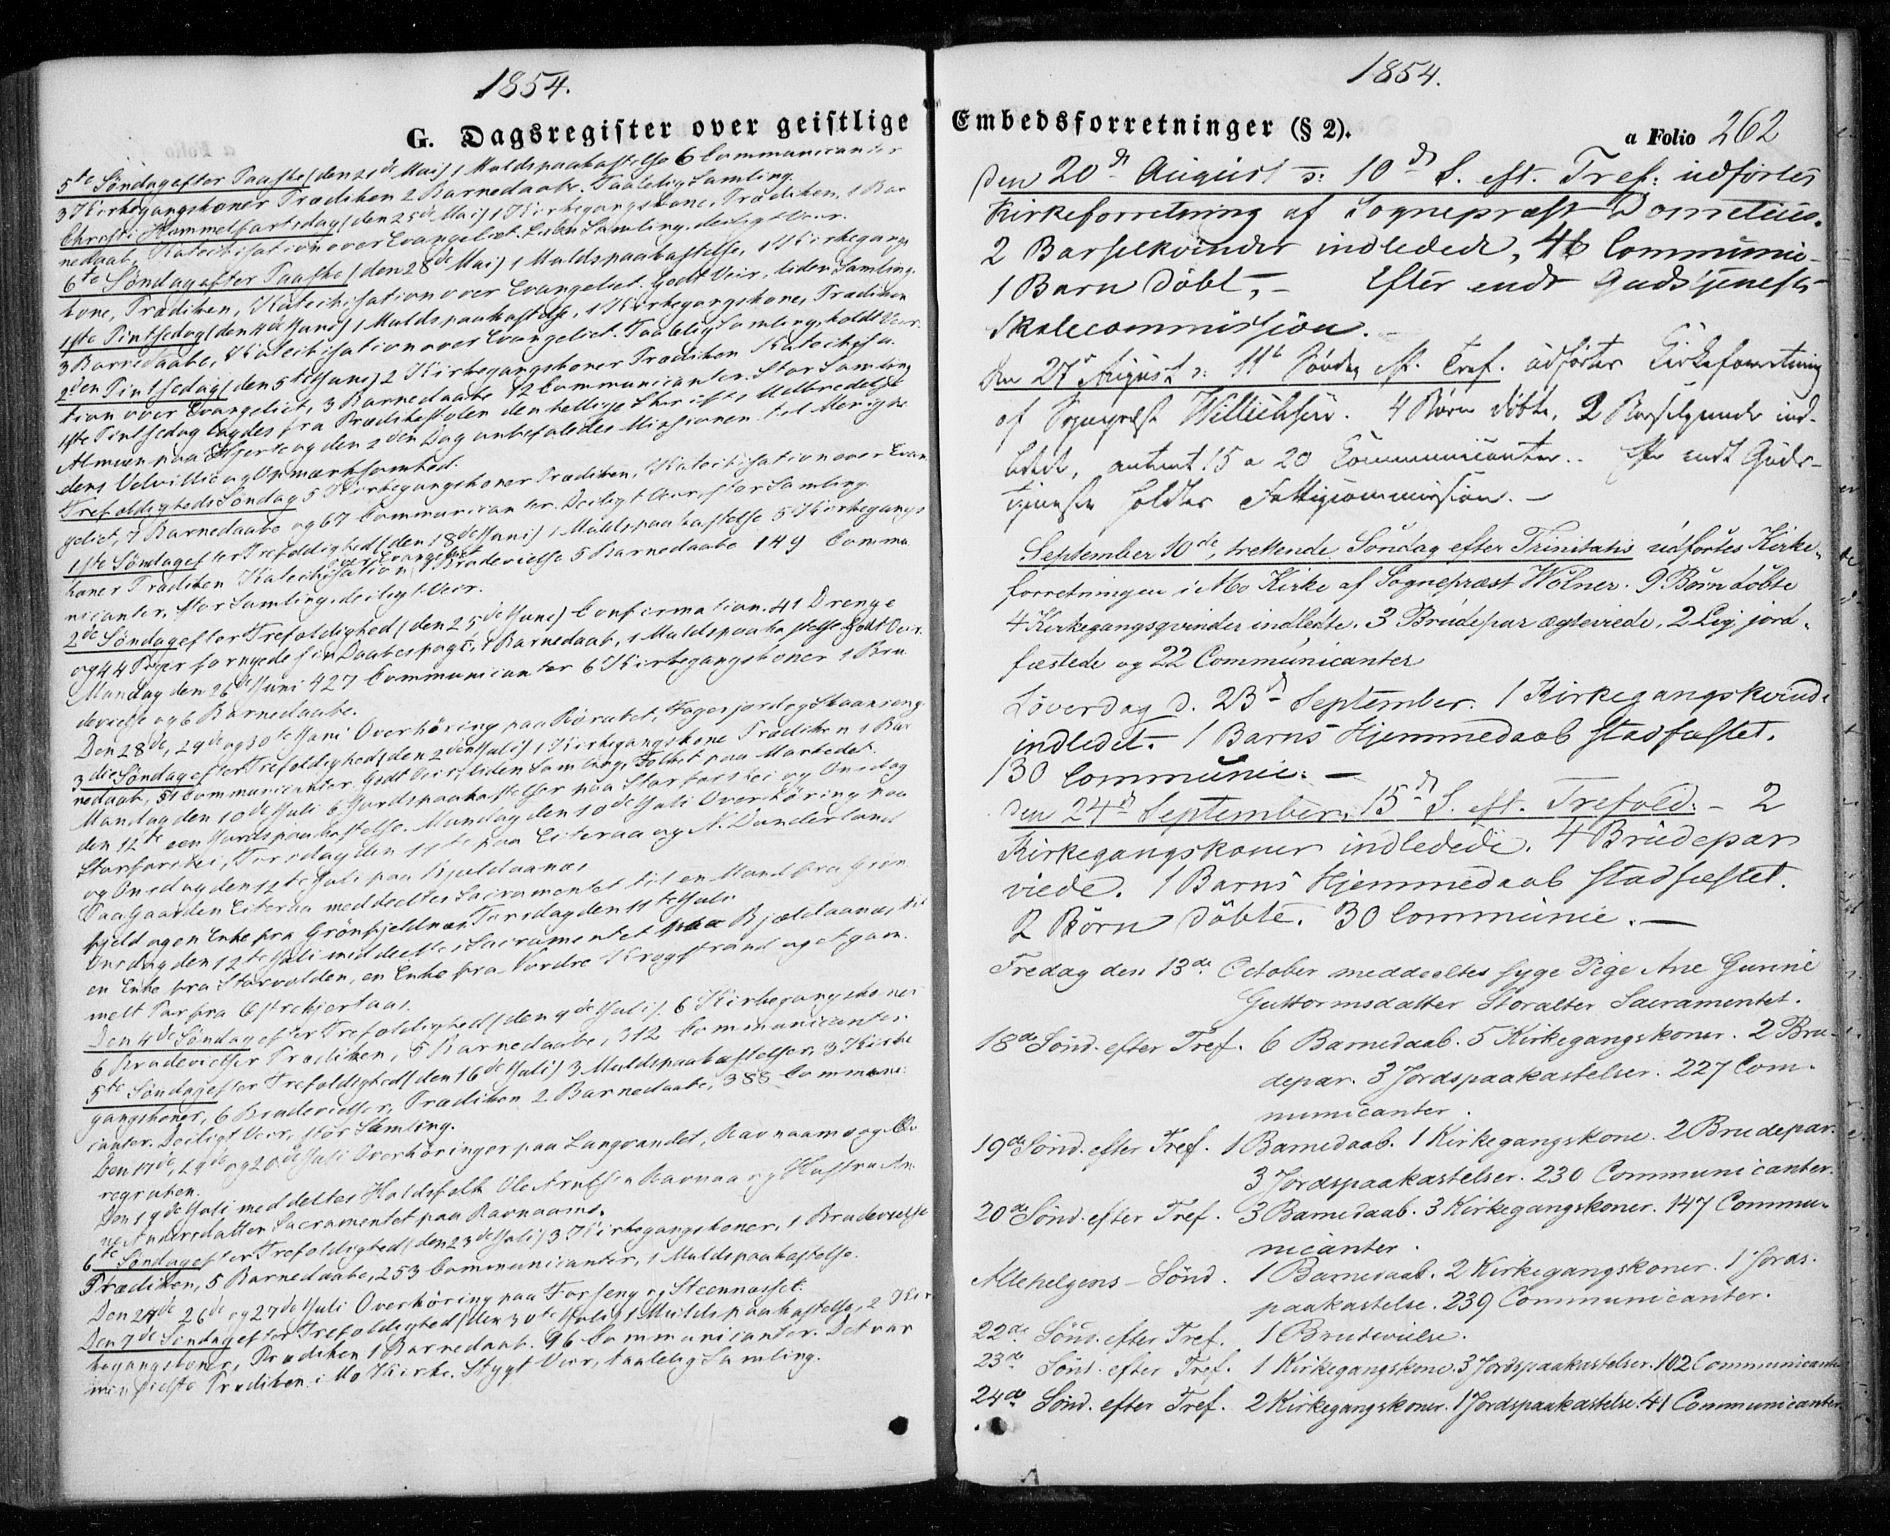 1854.
G. Dagsregister over geistlige
5te Søndag efter Paaske (den 21de Mai) 1 Muldspaakastelse 6 Communicanter
3 Kirkegangskoner Prædiken 2 Barnedaabe. Taalelig Samling.
Christi Himmelfartsdag (den 25de Mai) 1 Kirkegangskone, Prædiken, 1 Bar
nedaab, Katechisation over Evangeliet. Liden Samling, deiligt Veir.
6te Søndag efter Paaske (den 28de Mai) 1 Muldspaakastelse, 1 Kirkegangs
kone, Prædiken, Katechisation over Evangeliet. Godt Veir, liden Samling.
1ste Pintsedag (den 4de Juni) 1 Muldspaakastelse, 1 Kirkegangskone, Prædiken
3 Barnedaabe, Katechisation over Evangeliet. Taalelig Samling, koldt Veir.
2den Pintsedag (den 5te Juni) 2 Kirkegangskoner Prædiken Katechisa
tion over Evangeliet, 3 Barnedaabe 12 Communicanter. Stor Samling
1ste Pintsedag lagdes fra Prædikestolen den hellige Skrifts Udbredelse
Almuen paa Hjerte og den 2den Dag anbefaledes Missionen til Menighe
dens Velvillie og Opmærksomhed.
Trefoldigheds Søndag 5 Kirkegangskoner Prædiken, Katechisation over Evan
geliet, 7 Barnedaabe og 67 Communicanter. Deiligt Veir, stor Samling.
1ste Søndag efter Trefoldighed (den 18de Juni) 1 Muldspaakastelse 5 Kirkegangs
koner Prædiken Katechisation over Evangeliet 1 Brudevielse 5 Barnedaabe 149 Commu
nicanter, stor Samling, deiligt Veir.
2de Søndag efter Trefoldighed (den 25de Juni) Confirmation. 41 Drenge
og 44 Piger fornyede sin Daabespagt, 1 Barnedaab, 1 Muldspaakastelse. Godt Veir.
Mandag den 26de Juni 427 Communicanter 6 Kirkegangskoner 1 Bru
devielse og 6 Barnedaabe.
Den 28de, 29de og 30te Juni Overhøring paa Røvatnet, Fagerjord og Skaanseng
3die Søndag efter Trefoldighed (den 2den Juli) 1 Kirkegangskone Prædiken 1 Bar
nedaab, 51 Communicanter. Godt Veir, liden Samling. Folket paa Markedet.
Mandag den 10de Juli 6 Jordspaakastelser paa Storforshei og Onsdag
den 12te een Jordspaakastelse. Mandag den 10de Juli Overhøring paa
Storforshei, Tirsdag den 11te paa Eiteraa og N. Dunderland
og Onsdag den 12te Juli paa Bjeldaanæs
Paa Gaarden Eiteraa meddeeltes Sacramentet til en Mand fra Grøn
fjeld og en Enke fra Grønfjeldnæs Tirsdag den 11te Juli.
Onsdag den 12te Juli meddeeltes Sacramentet paa Bjeldaanæs til
en Enke fra Storvolden, en Enke fra Nordre Krogstrand og et gam
melt Par fra Østrehjertaas.
Den 4de Søndag efter Trefoldighed (den 9de Juli). 6 Kirkegangskoner
6 Brudevielser Prædiken, 5 Barnedaabe, 312 Communicanter.
5te Søndag efter Trefoldighed (den 16de Juli) 3 Muldspaakastelser, 3 Kirke
gangskoner, 6 Brudevielser, Prædiken 2 Barnedaabe, 388 Communi
canter. Deiligt Veir, stor Samling.
Den 17de, 19de og 20de Juli Overhøringer paa Langvandet, Ravnaamo og
Den 19de Juli meddeltes Holdsfolk Ole Arntsen Ravnaa og
Andersdatter Sacramentet paa Ravnaamo.
6te Søndag efter Trefoldighed (den 23de Juli) 3 Kirkegangskoner, 1 Brudevielse
Prædiken, 5 Barnedaabe, 253 Communicanter, 1 Muldspaakastelse.
Den 24de 26de og 27de Juli Overhøring paa Forseng og Steennæsset.
Den 7de Søndag efter Trefoldighed (den 30te Juli) 1 Muldspaakastelse, 2 Kir
kegangskoner, Prædiken 1 Barnedaab. 96 Communicanter. Det var
min sidste Prædiken i Mo Kirke. Stygt Veir, taalelig Samling.
1854.
Embedsforretninger (§ 2).
a Folio 262
Den 20de August ɔ: 10de S. eft. Tref: udførtes
Kirkeforretning af Sognepræst Dorretius.
2 Barselkvinder indledede, 46 Communic-
1 Barn døbt, - Efter endt Gudstjeneste
Skolecommission. -
Den 27de August ɔ: 11te Søndag eft. Tref. udførtes Kirkeforretning
af Sognepræst Willichsen. 4 Børn døbte, 2 Barselqvinder ind-
ledede, omtrent 15 a 20 Communicanter. Efter endt Guds-
tjeneste holdtes Fattigcommission. -
September 10de, trettende Søndag efter Trinitatis udførtes Kirke-
forretningen i Mo Kirke af Sognepræst Wolner. 9 Børn døbte
4 Kirkegangsqvinder indledte. 3 Brudepar ægteviede, 2 Lig jord-
fæstede og 22 Communicanter
Løverdag d. 23de September. 1 Kirkegangskvinde
indledet. 1 Barns Hjemmedaab stadfæstet.
130 Communic: -
Den 24de September, 15de S. eft. Trefold: - 2
Kirkegangskoner indledede. 4 Brudepar
viede. 1 Barns Hjemmedaab stadfæstet.
2 Børn døbte. 30 Communic. -
Fredag den 13de October meddeeltes syge Pige Ane Gunne
Guttormsdatter Storalter Sacramentet.
18de Sønd. efter Tref. 6 Barnedaab. 5 Kirkegangskoner. 2 Bru-
depar. 3 Jordspaakastelser. 227 Com-
municanter.
19de Sønd. efter Tref. 1 Barnedaab. 1 Kirkegangskone. 2 Brudepar.
3 Jordspaakastelser. 230 Communicanter.
20de Sønd. efter Tref. 3 Barnedaab. 3 Kirkegangskoner. 147 Commu-
nicanter.
Allehelgens-Sønd. 1 Barnedaab. 2 Kirkegangskoner. 1 Jords-
paakastelse. 239 Communicanter.
22de Sønd. efter Tref. 1 Brudevielse.
23de Sønd. efter Tref. 1 Kirkegangskone. 3 Jordspaakastelser. 102 Communicanter
24de Sønd. efter Tref. 2 Kirkegangskoner. 1 Jordspaakastelse. 41 Communicanter.